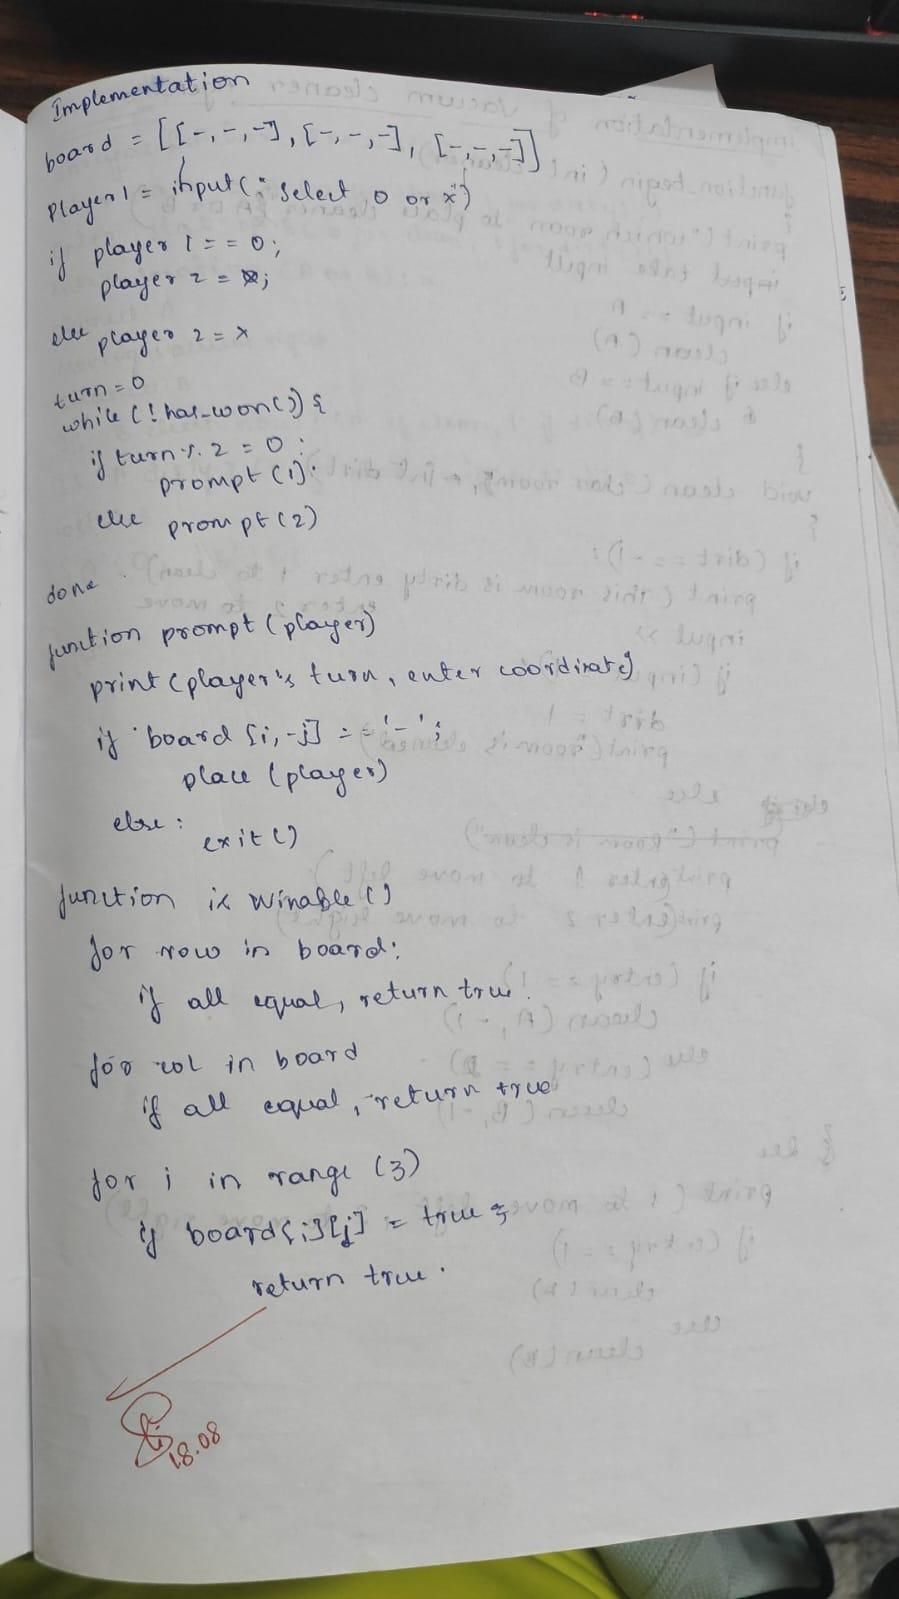 Implementation
board = [[-,-,-],[-,-,-],[-,-,-]]
Player1 = input("Select o or x")
if player 1 == 0;
player 2 =
else player 2 = x
turn = 0
while (! has_won()) {
if turn % 2 = 0 :
prompt (1).
else prompt (2)
done
function prompt (player)
print (player's turn, enter coordinate)
if board [i,-j] == '-';
place (player)
else :
exit ()
function is winable ()
for row in board:
if all equal, return true.
for col in board
if all equal, return true
for i in range (3)
if board[i][j] = true
return true.
18.08